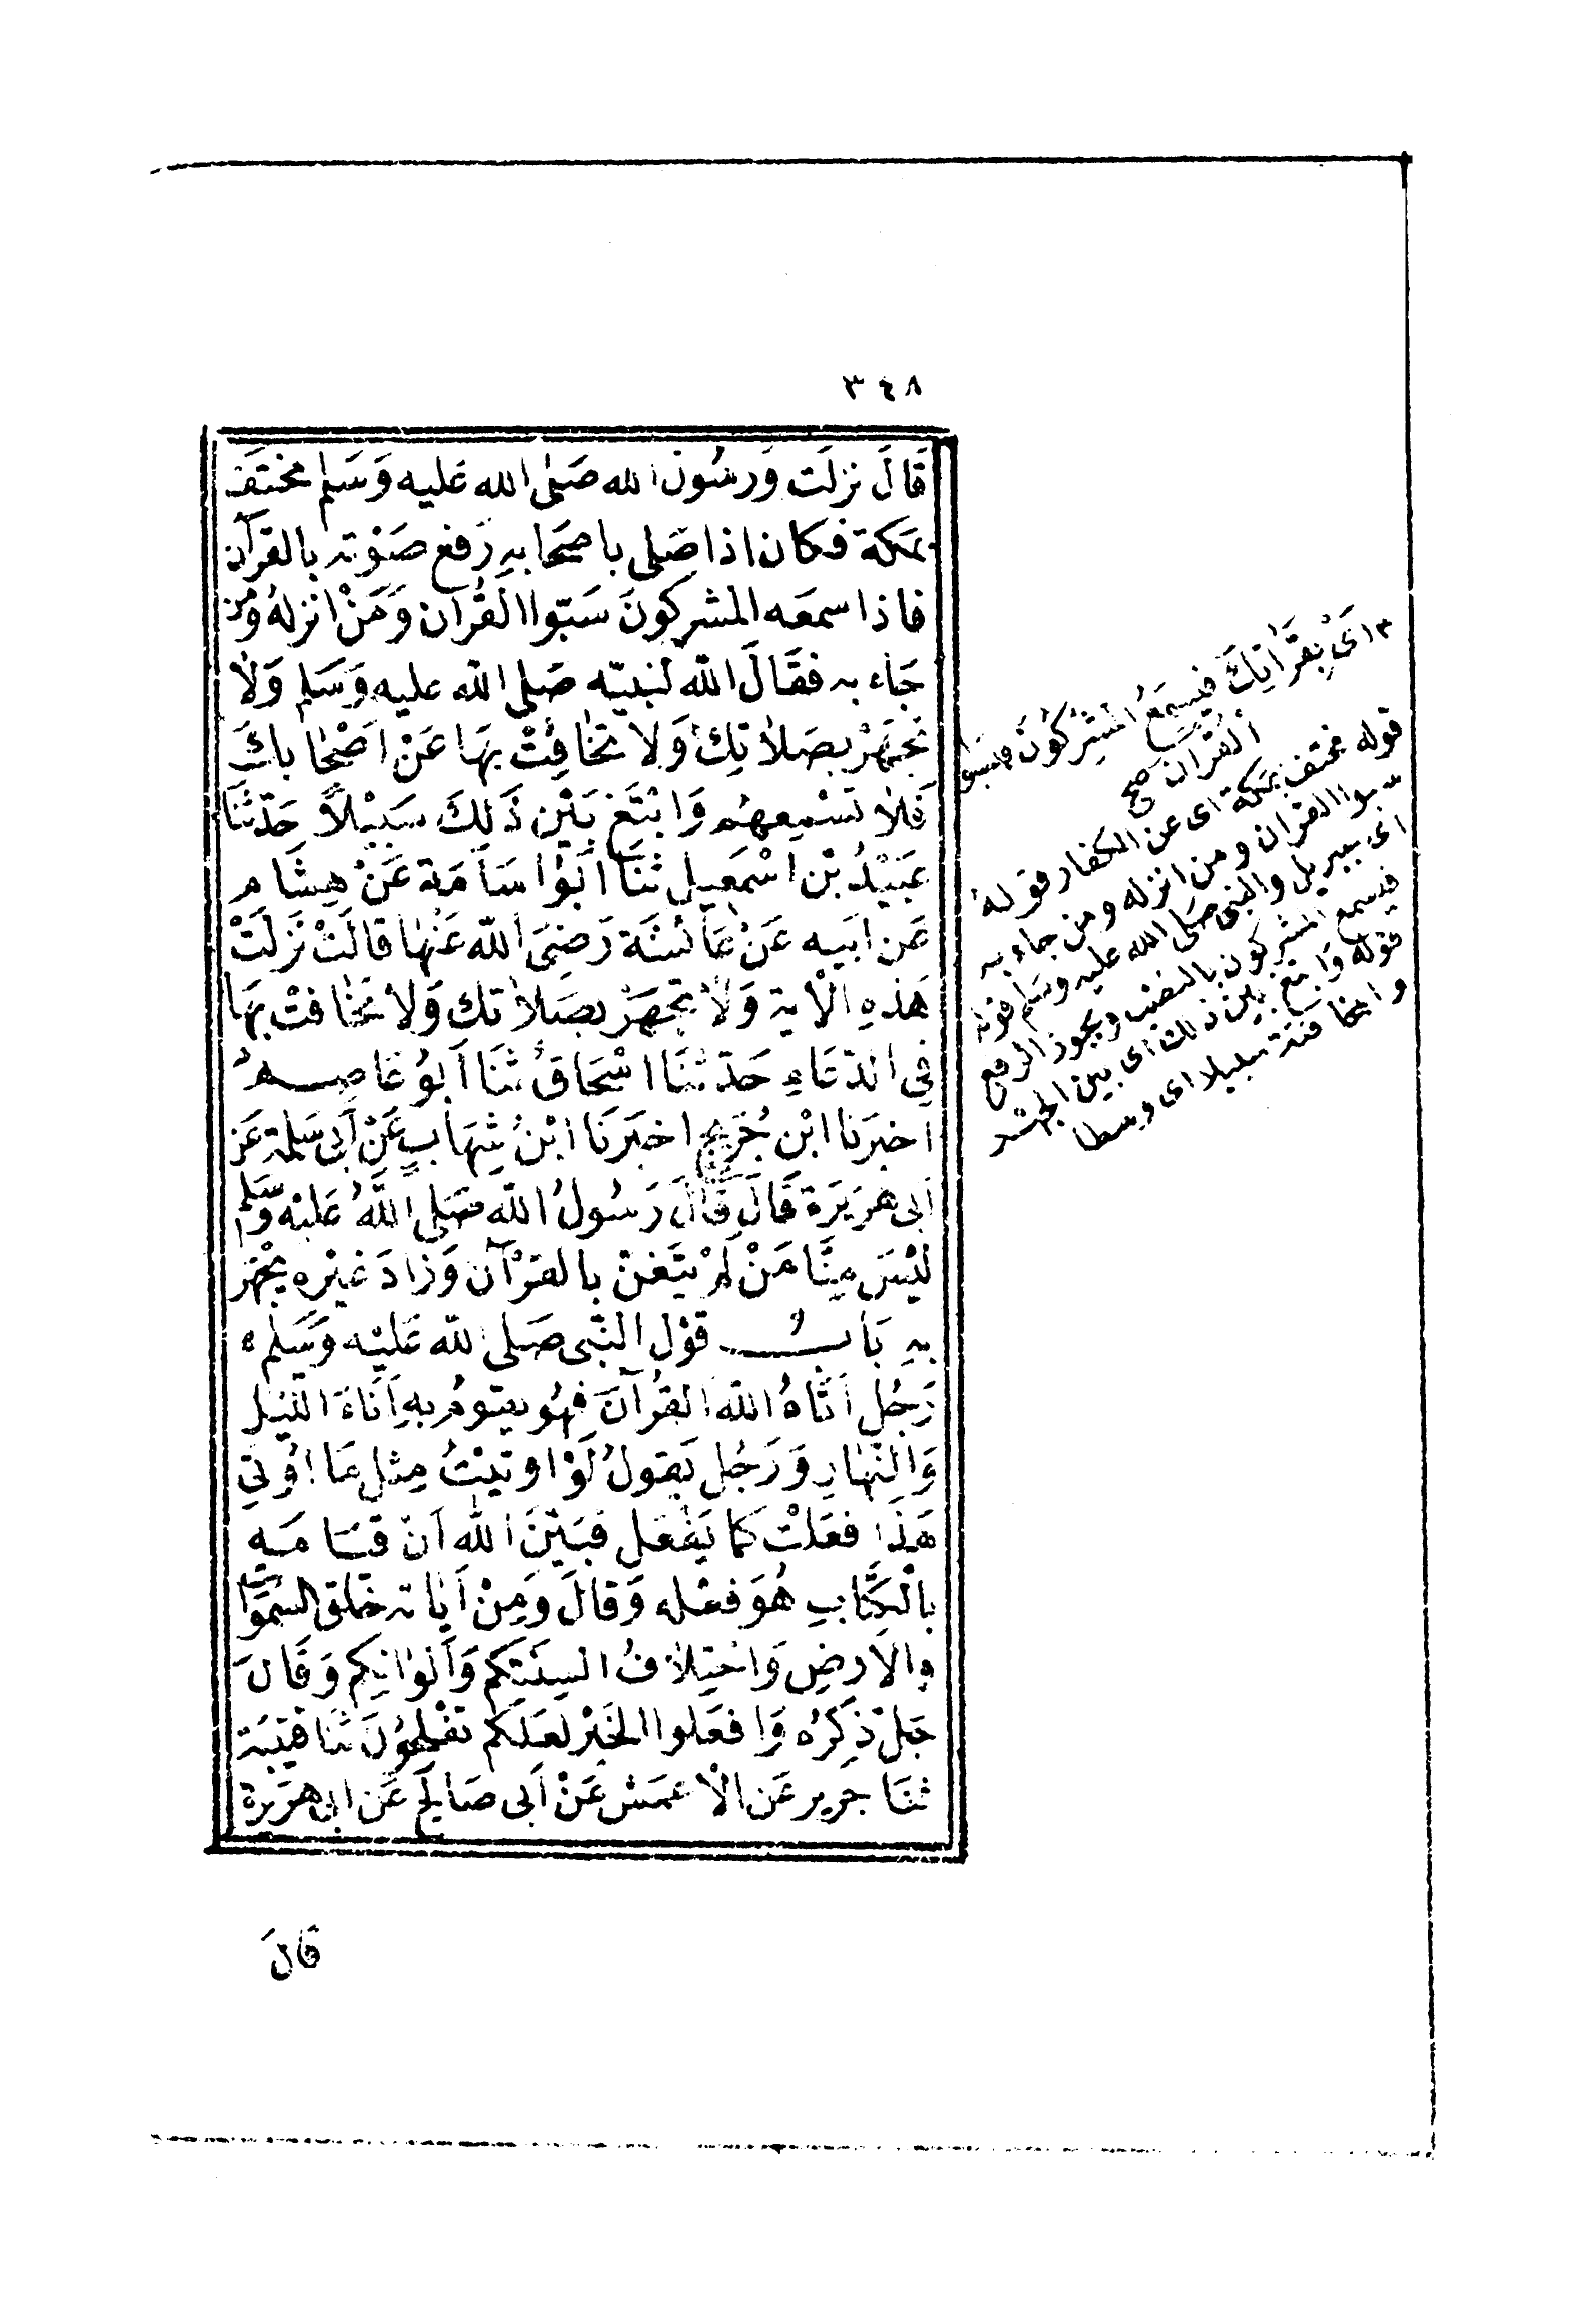 ٣٤٨
قَالَ نزلَت وَرسُولُ الله صَلى الله عَليه وَسَلم مختَف
بمَكة فكان اذا صَلى باصحَابهِ رَفع صَوْته بالقرآن
فاذا سمعَه المشركونَ سَبّوا القُرآن وَمَنْ انزلهُ وَمن
جَاء به فقَالَ الله لنبيّه صَلى الله عليه وَسَلم وَلاَ
تجهَرْ بصَلاَتِكَ وَلا تخَافِتْ بهَا عَنْ اَصْحَابكَ
فَلاَ تسْمِعهُم وَابْتَغِ بَيْن ذَلِكَ سَبيْلاً حَدّثنَا
عبَيْدُ بْن اسْمَعيل ثنَا ابُوا سَامَة عَنْ هِشَام
عَن ابَيه عَنْ عَائشَة رَضِىَ الله عَنْهَا قالَتْ نَزلَتْ
هَذهِ الآية وَلاَ تجهَرْ بصَلاَتك وَلا تخَافتْ بهَا
فِي الدّعَاءِ حَدّثنَا اسْحَاقُ ثنَا اَبُو عَاصِم
اخبَرنَا ابْن جُرَيج اخبَرنَا ابْنُ شِهَاب عَنْ اَبى سَلمة عَن
اَبى هرَيرَة قَالَ قَالَ رَسُولُ الله صَلى اللَّهُ عَليْه وَسَلم
لَيْسَ مِنَّا مَنْ لمْ يتَغَن بالقرْآن وَزادَ غيْره يجْهَر
بهِ بَابُ قوْل النّبى صَلى الله عَليْه وَسَلم
رَجُل اَتَاهُ الله القُرآنَ فهُو يقومُ بهِ اَنَاءَ اللّيْل
وَالنّهَارِ وَرَجُل يَقولُ لَوْ اوتيْتُ مِثل مَا اُوتي
هَذَا فعَلْت كما يَفْعَل فبَيَّنَ الله اَن قيَامَه
بالْكِتَابِ هُوَ فعْله وَقالَ وَمِنْ اَيَاته خَلق السموَات
والاَرضِ وَاختِلاَفُ السِنَتِكم وَاَلوَانِكم وَقَالَ
جَلّ ذِكرُه وَافعَلوا الخَيْر لعَلكم تفْلِحُونَ ثنَا قتيْبَة
ثنَا جَرير عَن الاَعمَش عَنْ اَبى صَالح عَن ابى هرَيرة
قالَ
٣ اىْ بِقَرَاتِكَ فيَسمَعُ المشركُونَ فيَسَبُّوا
القرآن صح
قوله مختف بمكة اى عن الكفار قولهُ
سبوا القران ومن انزله ومن جاء به
اى جبريل والنبى صلى الله عليه وسلم قوله
فيسمع المشركون بالنصب ويجوز الرفع
قوله وابتغ بين ذلك اى بين الجهر
والمخافتة سبيلا اى وسطا